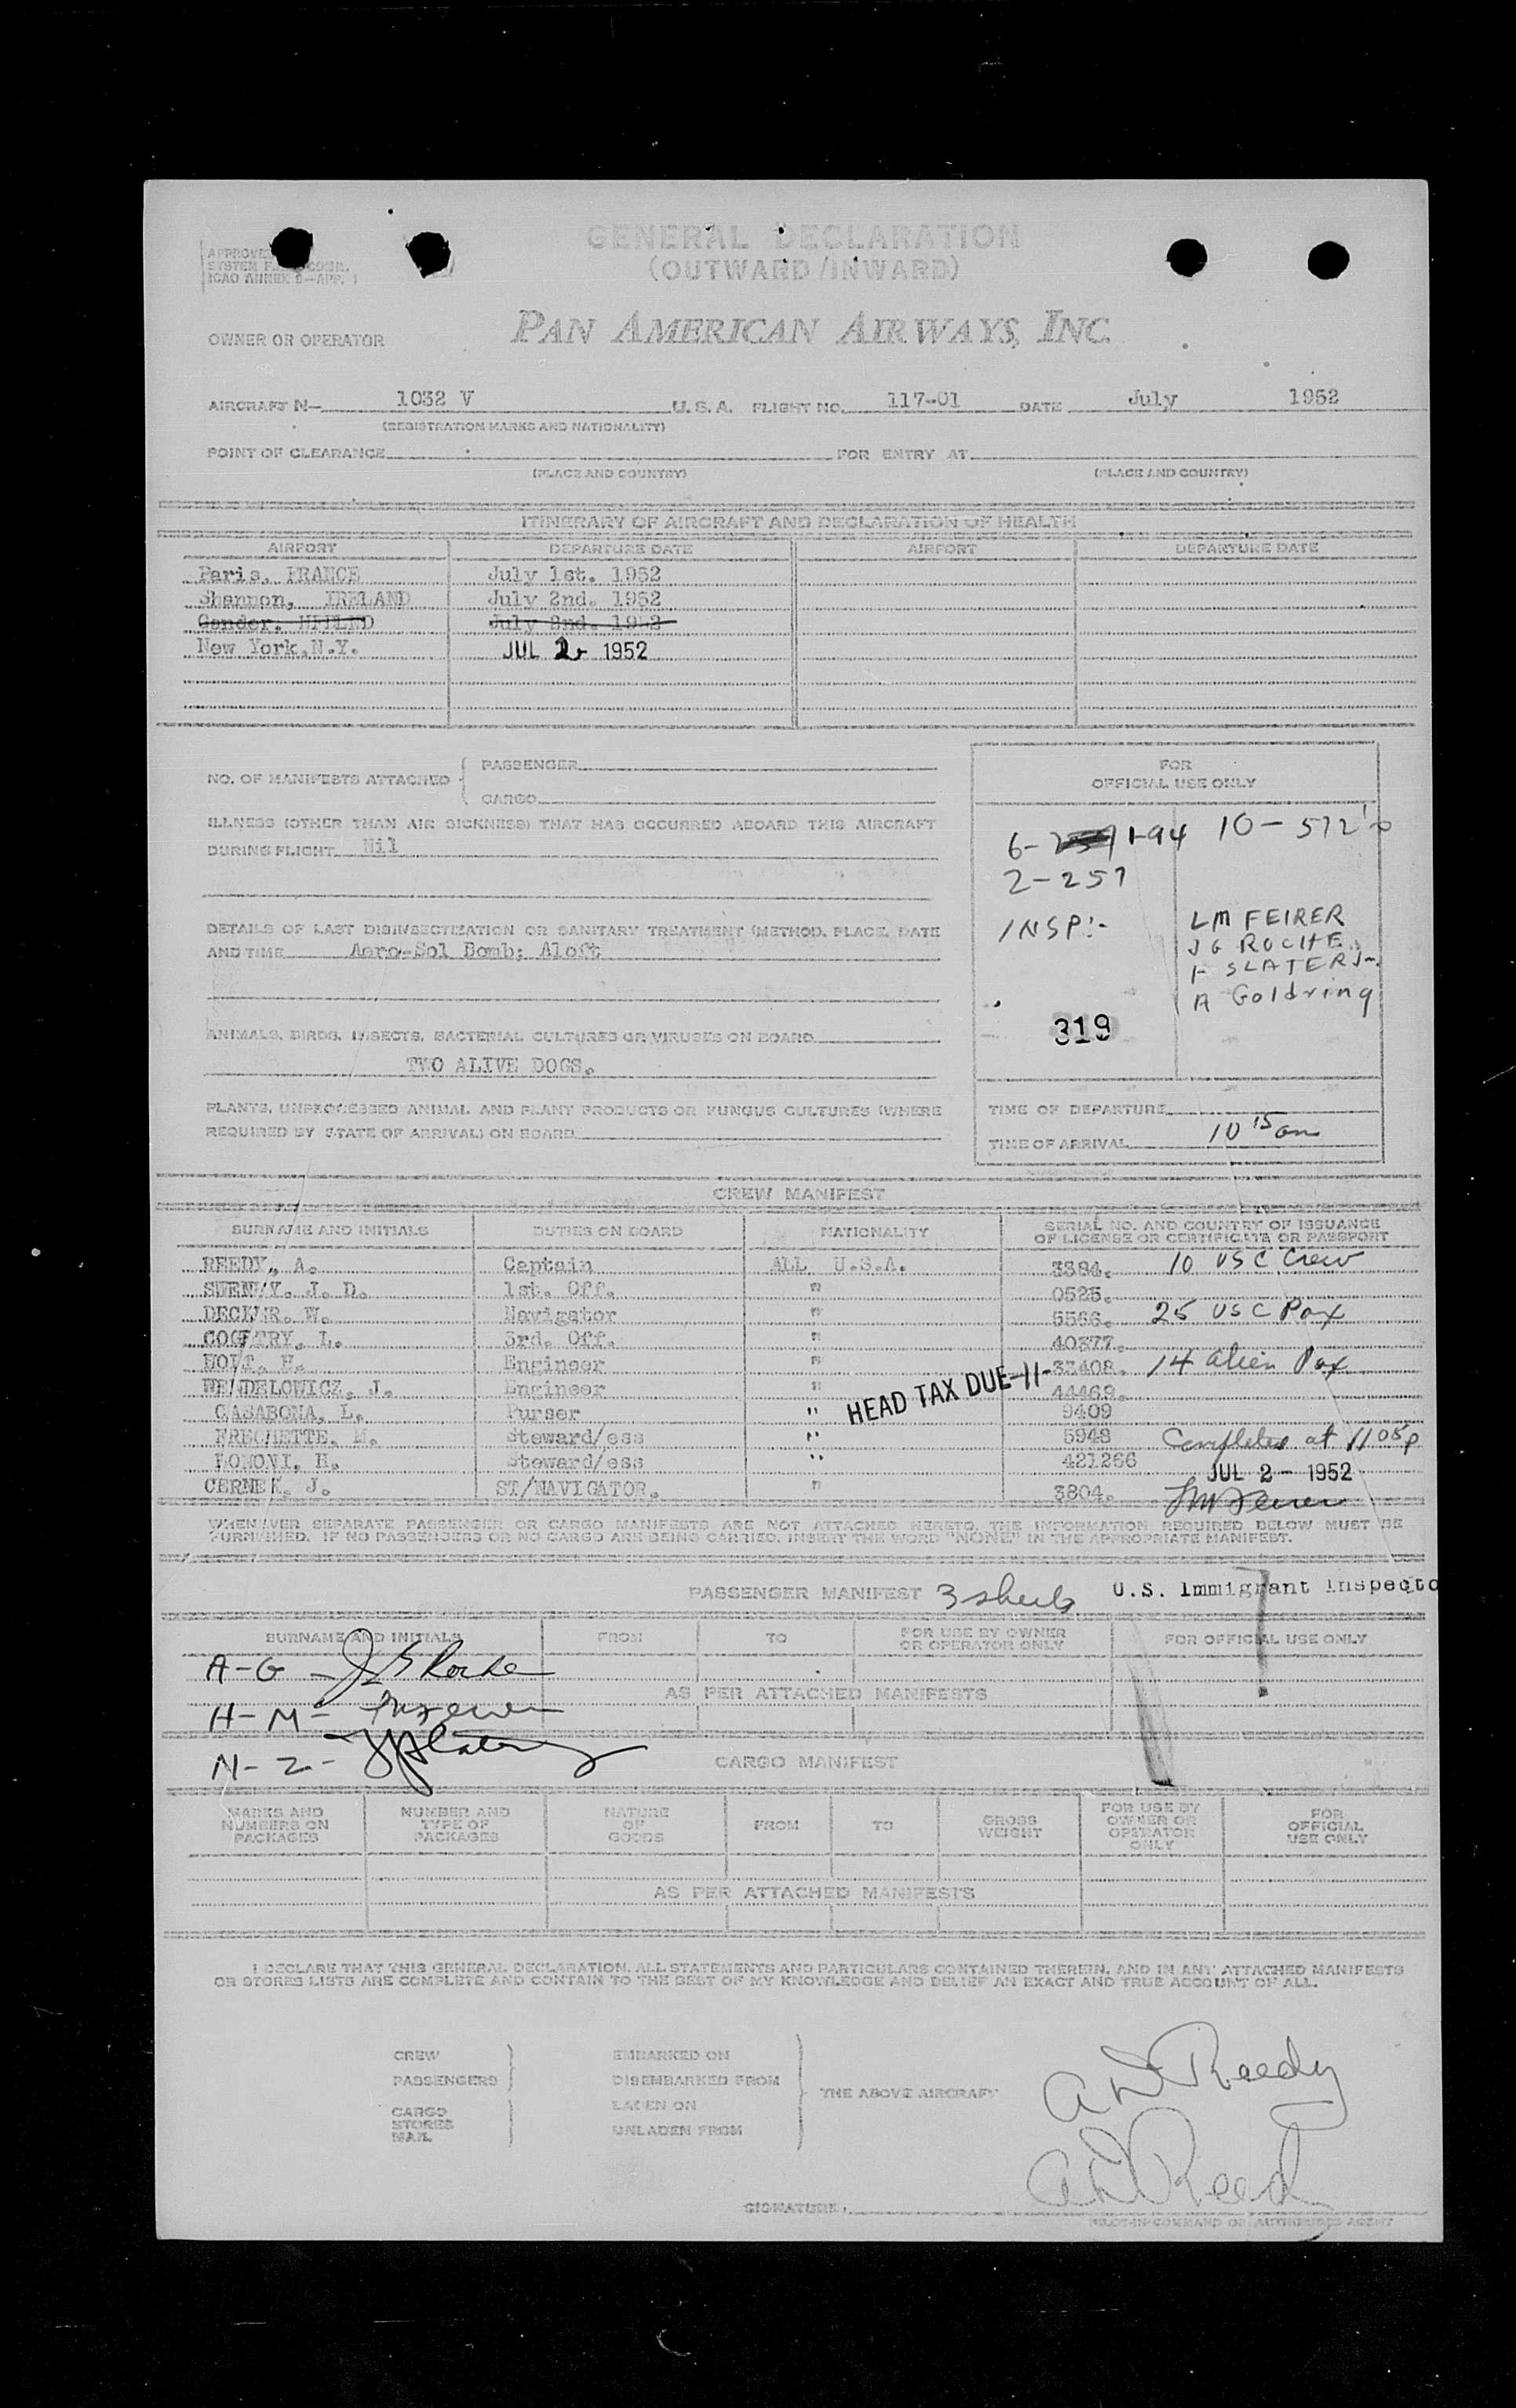 GENERAL DECLARATION
(OUTWARD/INWARD)
APPROVED
SYSTEM
ICAO ANNEX 9—APP. 1
OWNER OR OPERATOR PAN AMERICAN AIRWAYS, INC.
AIRCRAFT N— 1032 V U.S.A. FLIGHT NO. 117-01 DATE July 1952
(REGISTRATION MARKS AND NATIONALITY)
POINT OF CLEARANCE FOR ENTRY AT
(PLACE AND COUNTRY) (PLACE AND COUNTRY)
ITINERARY OF AIRCRAFT AND DECLARATION OF HEALTH
AIRPORT DEPARTURE DATE AIRPORT DEPARTURE DATE
Paris, FRANCE July 1st. 1952
Shannon, IRELAND July 2nd. 1952
Gander, July 2nd. 1952
New York, N.Y. JUL 2 1952
NO. OF MANIFESTS ATTACHED { PASSENGER
CARGO
FOR
OFFICIAL USE ONLY
ILLNESS (OTHER THAN AIR SICKNESS) THAT HAS OCCURRED ABOARD THIS AIRCRAFT
DURING FLIGHT Nil
6- 1-94 10-572
2-257
DETAILS OF LAST DISINSECTIZATION OR SANITARY TREATMENT (METHOD, PLACE, DATE
AND TIME Aero-Sol Bomb; Aloft
INSP:- LM FEIRER
JG ROCHE
F SLATER Jr.
A Goldring
319
ANIMALS, BIRDS, INSECTS, BACTERIAL CULTURES OR VIRUSES ON BOARD
TWO ALIVE DOGS.
PLANTS, UNPROCESSED ANIMAL AND PLANT PRODUCTS OR FUNGUS CULTURES (WHERE
REQUIRED BY STATE OF ARRIVAL) ON BOARD
TIME OF DEPARTURE
TIME OF ARRIVAL 10 15 am
CREW MANIFEST
SURNAME AND INITIALS DUTIES ON BOARD NATIONALITY SERIAL NO. AND COUNTRY OF ISSUANCE
OF LICENSE OR CERTIFICATE OR PASSPORT
REEDY, A. Captain ALL U.S.A. 3384. 10 USC Crew
SWENEY. J. D. 1st. Off. " 0525.
DECKER. W. Navigator " 5566. 25 USC Pax
L. 3rd. Off. " 40377.
HOLT. H. Engineer " 33408. 14 alien Pax
WENDELOWICZ, J. Engineer " 44469.
HEAD TAX DUE-11-
CASABONA, L. Purser " 9409
FRECHETTE, M. Steward/ess " 5948 Completed at 11 05
H. Steward/ess " 421266
JUL 2 - 1952
CERNEK. J. ST/NAVIGATOR. " 3804. LM Feirer
WHENEVER SEPARATE PASSENGER OR CARGO MANIFESTS ARE NOT ATTACHED HERETO, THE INFORMATION REQUIRED BELOW MUST BE
FURNISHED. IF NO PASSENGERS OR NO CARGO ARE BEING CARRIED, INSERT THE WORD "NONE" IN THE APPROPRIATE MANIFEST.
PASSENGER MANIFEST 3 sheets U.S. Immigrant Inspecto
SURNAME AND INITIALS FROM TO FOR USE BY OWNER
OR OPERATOR ONLY FOR OFFICIAL USE ONLY
A-G JG Roche
AS PER ATTACHED MANIFESTS
H-M- LM Feirer
N-Z- F Slater Jr
CARGO MANIFEST
MARKS AND
NUMBERS ON
PACKAGES NUMBER AND
TYPE OF
PACKAGES NATURE
OF
GOODS FROM TO GROSS
WEIGHT FOR USE BY
OWNER OR
OPERATOR
ONLY FOR
OFFICIAL
USE ONLY
AS PER ATTACHED MANIFESTS
I DECLARE THAT THIS GENERAL DECLARATION, ALL STATEMENTS AND PARTICULARS CONTAINED THEREIN, AND IN ANY ATTACHED MANIFESTS
OR STORES LISTS ARE COMPLETE AND CONTAIN TO THE BEST OF MY KNOWLEDGE AND BELIEF AN EXACT AND TRUE ACCOUNT OF ALL.
CREW EMBARKED ON
PASSENGERS DISEMBARKED FROM
THE ABOVE AIRCRAFT
CARGO LADEN ON
STORES
MAIL UNLADEN FROM
A D Reedy
A D Reed
SIGNATURE
PILOT-IN-COMMAND OR AUTHORISED AGENT